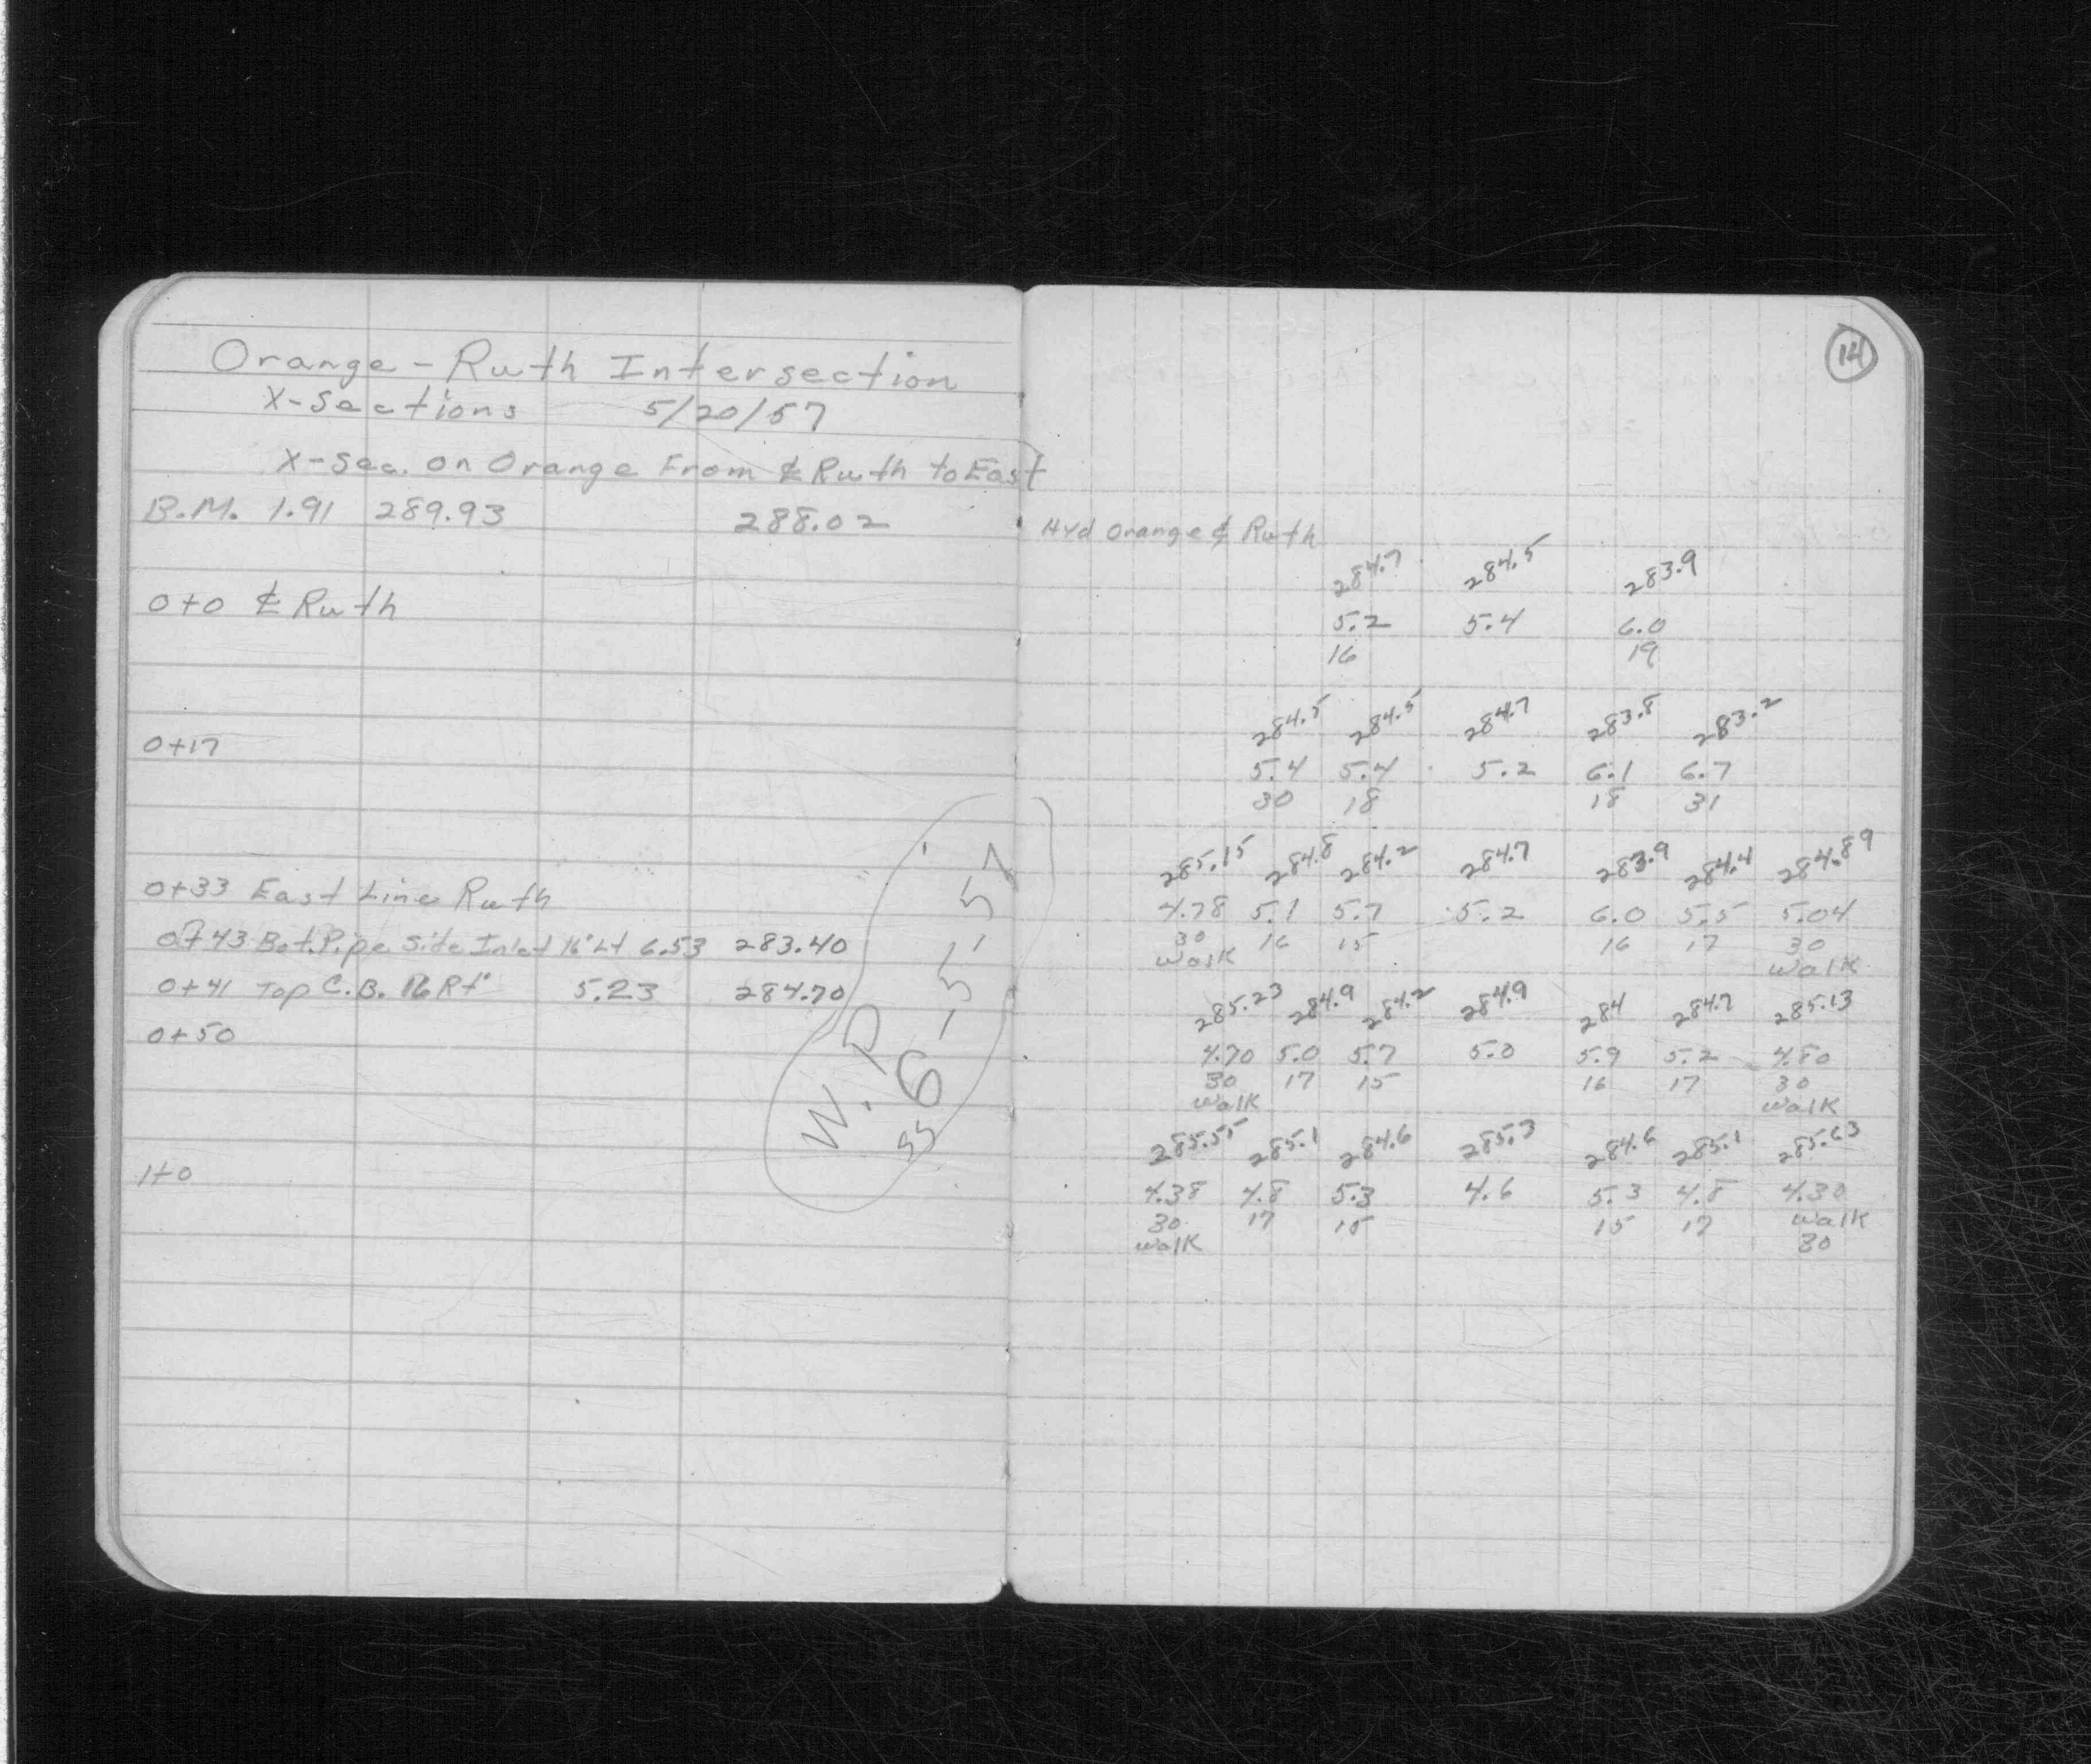 Orange-Ruth Intersection
X-Sections 5/20/57
X-Sec. on Orange From ℄ Ruth to East
B.M. 1.91 289.93 288.02
0+0 ℄ Ruth
0+17
0+33 East Line Ruth
0+43 Bot. Pipe Side Inlet 16' Lt 6.53 283.40
0+41 Top C.B. 16 Rt 5.23 284.70
0+50
1+0
W.P.
6-5-57
14
Hyd Orange & Ruth
284.7 284.5 283.9
5.2 5.4 6.0
16 19
284.5 284.5 284.7 283.8 283.2
5.4 5.4 5.2 6.1 6.7
30 18 18 31
285.15 284.8 284.2 284.7 283.9 284.4 284.89
4.78 5.1 5.7 5.2 6.0 5.5 5.04
30 16 15 16 17 30
Walk Walk
285.23 284.9 284.2 284.9 284 284.7 285.13
4.70 5.0 5.7 5.0 5.9 5.2 4.80
30 17 15 16 17 30
Walk Walk
285.55 285.1 284.6 285.3 284.6 285.1 285.63
4.38 4.8 5.3 4.6 5.3 4.8 4.30
30 17 15 15 17 Walk
Walk 30